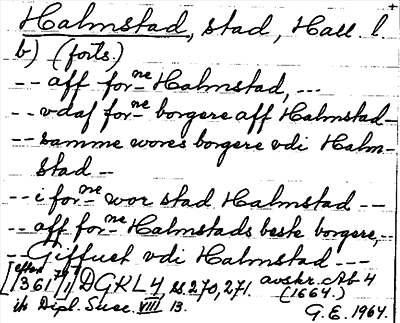 Halmstad, stad, Hall. l
b) (forts.)
-- aff forne Halmstad, ...
-- vdaf forne borgere aff Halmstad --
-- samme wores borgere vdi Halm-
stad --
-- i forne wor stad Halmstad --
-- aff forne Halmstads beste borgere, --
-- Giffuet vdi Halmstad ---
[efter 1361 7/1] DGKL 4, ss 270, 271. avskr. Ab 4
(1664.)
ib Dipl. Suec. VIII 13. G. E. 1964.